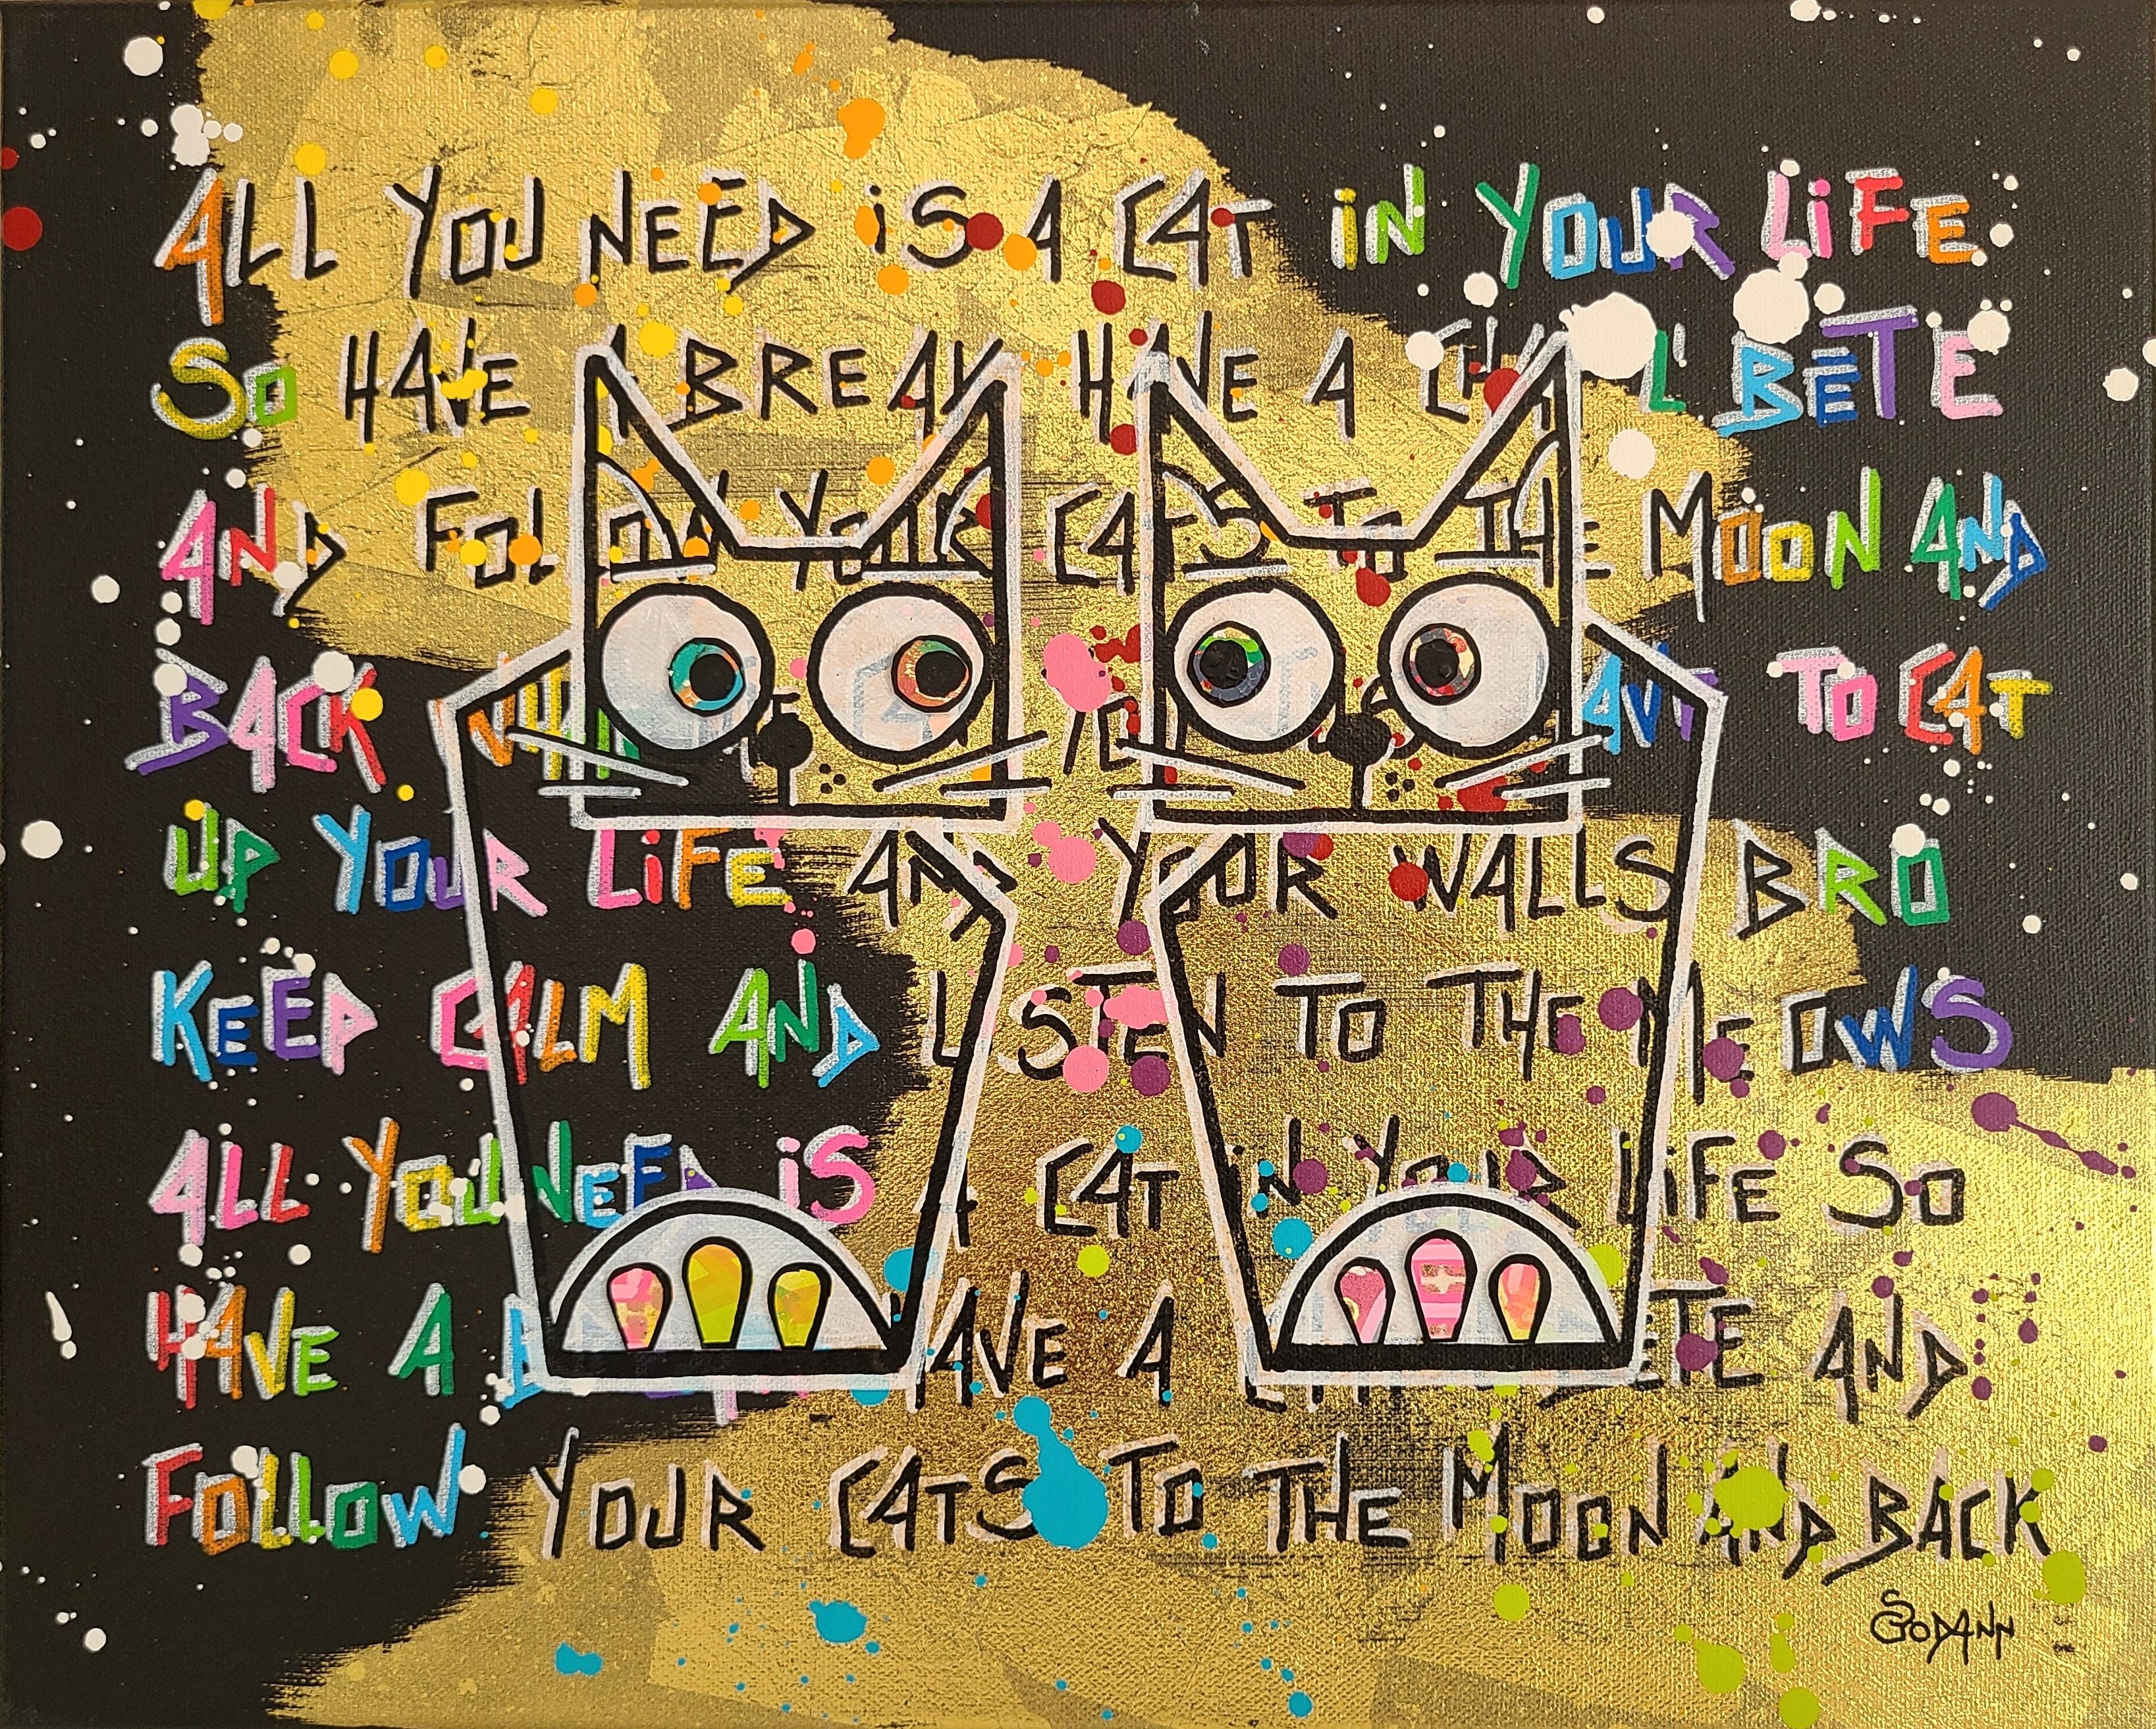 ALL YOU NEED iS A CAT iN YOUR LiFE
So HAVE A BREAK HAVE A CHA L' BÊTE
AND FOLLOW YOUR CATS To THE MOON AND
BACK To CAT
UP YOUR LiFE AND YOUR WALLS BRO
KEEP CALM AND LiSTEN To THE MEOWS
ALL YOU NEED iS A CAT iN YOUR LiFE So
HAVE A HAVE A AND
FoLLoW YOUR CATS To THE MOON AND BACK
SGODANN